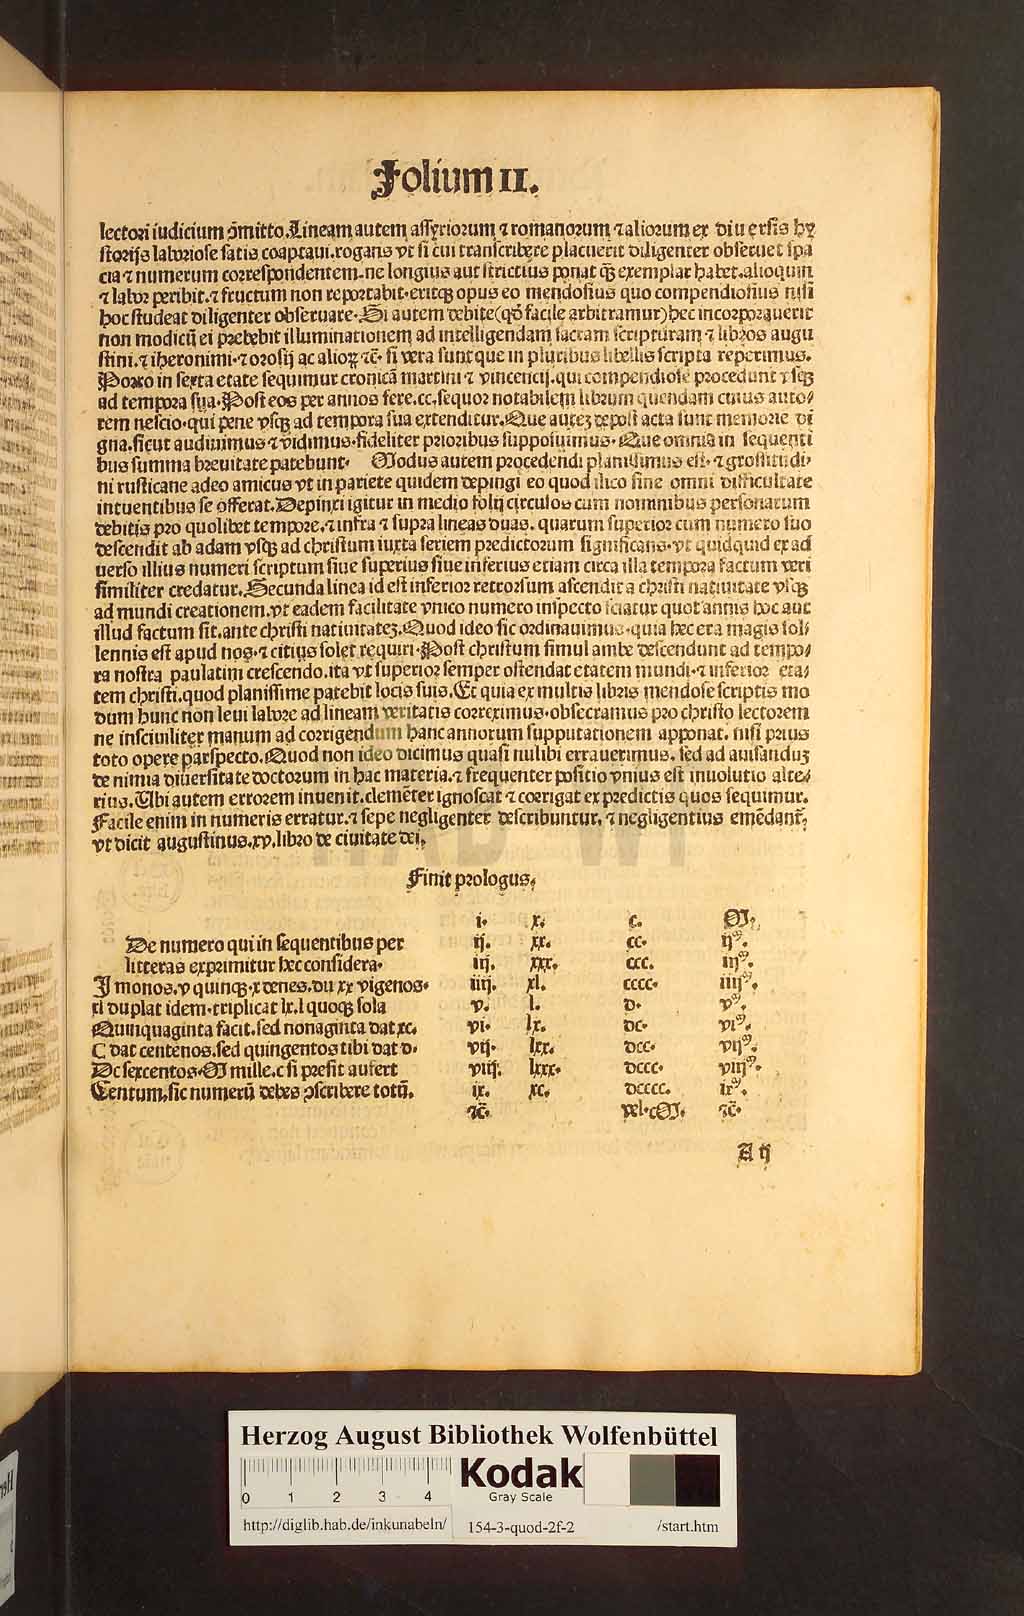 Folium II.
lectori iudicium ōmitto. Lineam autem assyriorum ⁊ romanorum ⁊ aliorum ex diuersis hy
storijs laboriose satis coaptaui. rogans vt si cui transcribere placuerit diligenter obseruet spa
cia ⁊ numerum correspondentem. ne longius aut strictius ponat q̄ꝫ exemplar habet. alioquin
⁊ labor peribit. ⁊ fructum non reportabit. eritqꝫ opus eo mendosius quo compendiosius nisi
hoc studeat diligenter obseruare. Si autem debite (qd̄ facile arbitramur) hec incorporauerit
non modicū ei prebebit illuminationem ad intelligendam sacram scripturam ⁊ libros augu
stini. ⁊ iheronimi. ⁊ orosij ac alioꝝ ⁊c̄. si vera sunt que in pluribus libellis scripta reperimus.
Porro in sexta etate sequimur cronicā martini ⁊ vincencij. qui compendiose procedunt vsqꝫ
ad tempora sua. Post eos per annos fere .cc. sequor notabilem librum quendam cuius auto-
rem nescio. qui pene vsqꝫ ad tempora sua extenditur. Que auteꝫ depost acta sunt memorie di
gna. sicut audiuimus ⁊ vidimus. fideliter prioribus supposuimus. Que omnia in sequenti
bus summa breuitate patebunt. Modus autem procedendi planissimus est. ⁊ grossitudi-
ni rusticane adeo amicus vt in pariete quidem depingi eo quod ilico sine omni difficultate
intuentibus se offerat. Depinxi igitur in medio folij circulos cum nominibus personarum
debitis pro quolibet tempore. ⁊ infra ⁊ supra lineas duas. quarum superior cum numero suo
descendit ab adam vsqꝫ ad christum iuxta seriem predictorum significans. vt quidquid ex ad
uerso illius numeri scriptum siue superius siue inferius etiam circa illa tempora factum veri
similiter credatur. Secunda linea id est inferior retrorsum ascendit a christi natiuitate vsqꝫ
ad mundi creationem. vt eadem facilitate vnico numero inspecto sciatur quot annis hoc aut
illud factum sit. ante christi natiuitateꝫ. Quod ideo sic ordinauimus. quia hec era magis sol-
lennis est apud nos. ⁊ citius solet requiri. Post christum simul ambe descendunt ad tempo-
ra nostra paulatim crescendo. ita vt superior semper ostendat etatem mundi. ⁊ inferior eta-
tem christi. quod planissime patebit locis suis. Et quia ex multis libris mendose scriptis mo
dum hunc non leui labore ad lineam veritatis correximus. obsecramus pro christo lectorem
ne insciuiliter manum ad corrigendum hanc annorum supputationem apponat. nisi prius
toto opere parspecto. Quod non ideo dicimus quasi nulibi errauerimus. sed ad auisanduꝫ
de nimia diuersitate doctorum in hac materia. ⁊ frequenter positio vnius est inuolutio alte-
rius. Ubi autem errorem inuenit. clemēter ignoscat ⁊ corrigat ex predictis quos sequimur.
Facile enim in numeris erratur. ⁊ sepe negligenter describuntur. ⁊ negligentius emēdant᷑.
vt dicit augustinus .xv. libro de ciuitate dei.
Finit prologus.
i. x. c. M.
De numero qui in sequentibus per ij. xx. cc. ijᵐ.
litteras exprimitur hec considera. iij. xxx. ccc. iijᵐ.
I monos. v quinqꝫ. x denes. du xx vigenos. iiij. xl. cccc. iiijᵐ.
xl duplat idem. triplicat lx. l quoqꝫ sola v. l. d. vᵐ.
Quinquaginta facit. sed nonaginta dat xc. vi. lx. dc. viᵐ.
C dat centenos. sed quingentos tibi dat d. vij. lxx. dcc. vijᵐ.
Dc sexcentos. M mille. c si presit aufert viij. lxxx. dccc. viijᵐ.
Centum. sic numerū debes ꝓscribere totū. ix. xc. dcccc. ixᵐ.
⁊c̄. vel. cM. ⁊c̄.
A ij
HAB WF
Herzog August Bibliothek Wolfenbüttel
Kodak
Gray Scale
0 1 2 3 4
http://diglib.hab.de/inkunabeln/ 154-3-quod-2f-2 /start.htm